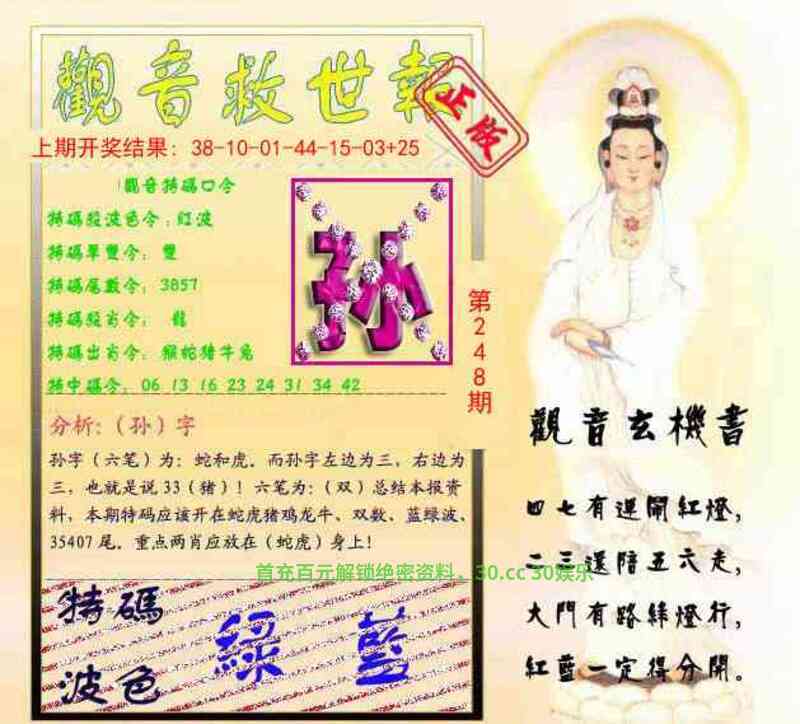 觀音救世報
正版
上期开奖结果：38-10-01-44-15-03+25
觀音特碼口令
特碼殺波色令：紅波
特碼單雙令：雙
特碼尾數令：3857
特碼殺肖令：龍
特碼出肖令：猴蛇猪牛兔
特中碼令：06 13 16 23 24 31 34 42
孙
第248期
分析:（孙）字
孙字（六笔）为：蛇和虎．而孙字左边为三，右边为
三，也就是说33（猪）！六笔为：（双）总结本报资
料，本期特码应该开在蛇虎猪鸡龙牛、双数、蓝绿波、
35407尾．重点两肖应放在（蛇虎）身上！
首充百元解锁绝密资料，30.cc 30娱乐
特碼
波色
綠 藍
觀音玄機書
四七有運開紅燈，
二三還陪五六走，
大門有路綠燈行，
紅藍一定得分開。